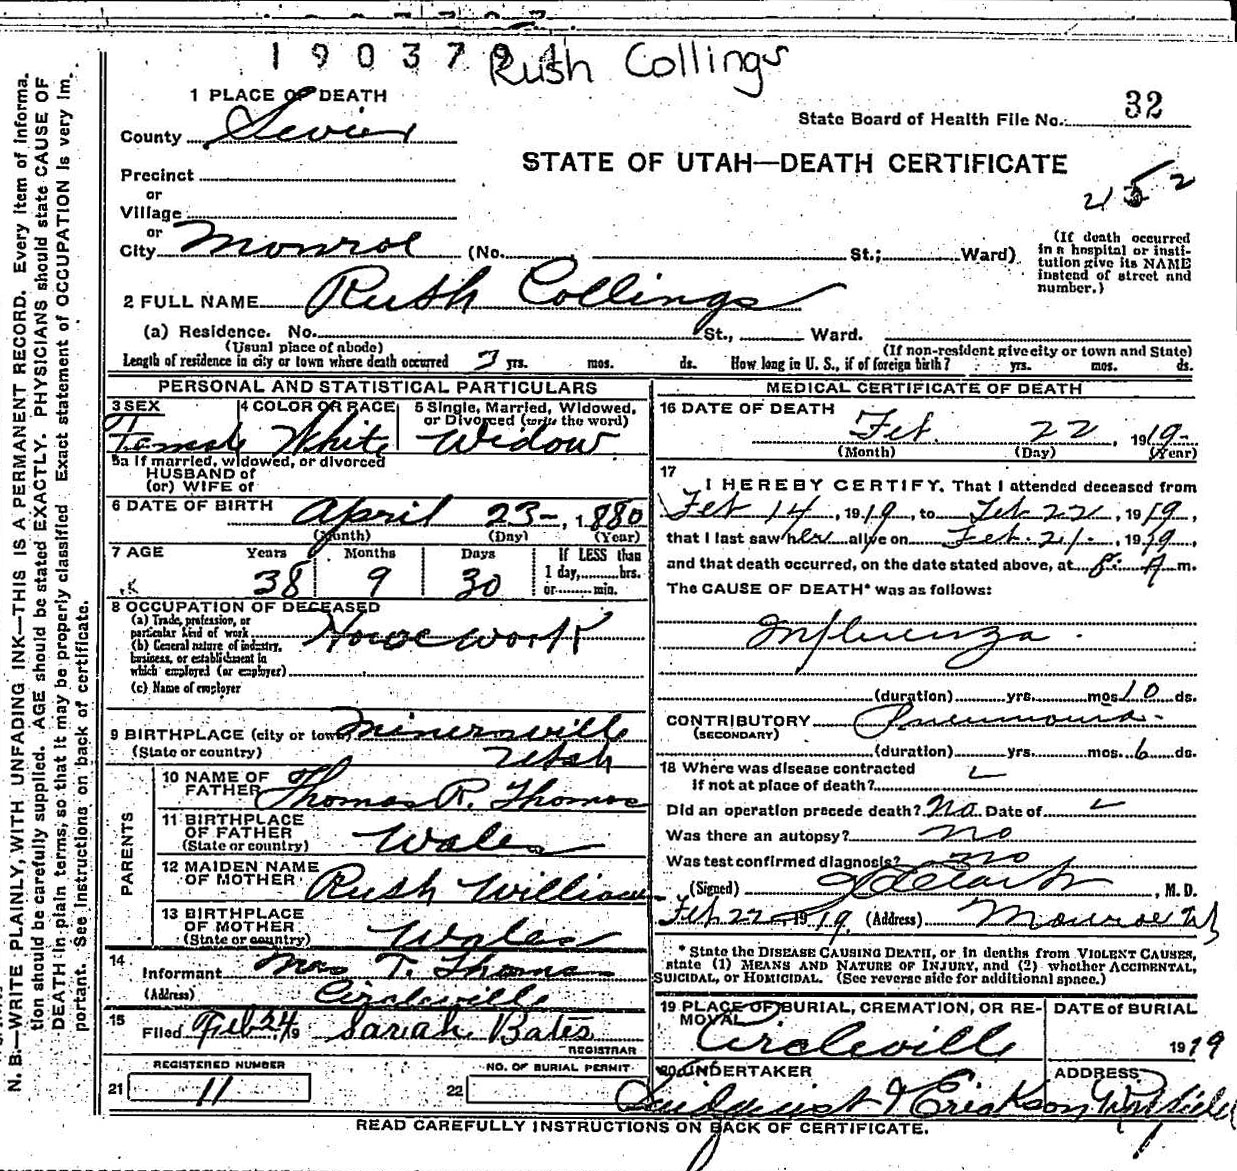 1903794
Rush Collings
1 PLACE OF DEATH
County Sevier
State Board of Health File No. 32
STATE OF UTAH—DEATH CERTIFICATE
Precinct
or
Village
or
City Monroe (No. St.; Ward)
(If death occurred in a hospital or institution give its NAME instead of street and number.)
2 FULL NAME Rush Collings
(a) Residence. No. St., Ward.
(Usual place of abode) (If non-resident give city or town and State)
Length of residence in city or town where death occurred 3 yrs. mos. ds. How long in U. S., if of foreign birth? yrs. mos. ds.
PERSONAL AND STATISTICAL PARTICULARS
3 SEX Female
4 COLOR OR RACE White
5 Single, Married, Widowed, or Divorced (write the word) Widow
5a If married, widowed, or divorced
HUSBAND of
(or) WIFE of
6 DATE OF BIRTH April 23-, 1880
(Month) (Day) (Year)
7 AGE Years Months Days If LESS than
38 9 30 1 day, hrs.
or min.
8 OCCUPATION OF DECEASED
(a) Trade, profession, or
particular kind of work Housework
(b) General nature of industry,
business, or establishment in
which employed (or employer)
(c) Name of employer
9 BIRTHPLACE (city or town) Minersville
(State or country) Utah
PARENTS
10 NAME OF FATHER Thomas R. Thomas
11 BIRTHPLACE OF FATHER (State or country) Wales
12 MAIDEN NAME OF MOTHER Rush Williams
13 BIRTHPLACE OF MOTHER (State or country) Wales
14 Informant Mrs T. Thomas
(Address) Circleville
15 Filed Feb 24 19 Sarah Bates
REGISTRAR
REGISTERED NUMBER
21 11
NO. OF BURIAL PERMIT
22
MEDICAL CERTIFICATE OF DEATH
16 DATE OF DEATH
Feb. 22, 1919-
(Month) (Day) (Year)
17
I HEREBY CERTIFY, That I attended deceased from
Feb 14, 1919, to Feb 22, 1919,
that I last saw her alive on Feb. 21-, 1919,
and that death occurred, on the date stated above, at 8: A m.
The CAUSE OF DEATH* was as follows:
Influenza.
(duration) yrs. mos 10 ds.
CONTRIBUTORY Pneumonia-
(SECONDARY)
(duration) yrs. mos. 6 ds.
18 Where was disease contracted
if not at place of death?
Did an operation precede death? No. Date of
Was there an autopsy? no
Was test confirmed diagnosis? no
(Signed) Clark, M. D.
Feb 22- 1919 (Address) Monroe Ut
* State the DISEASE CAUSING DEATH, or in deaths from VIOLENT CAUSES,
state (1) MEANS AND NATURE OF INJURY, and (2) whether ACCIDENTAL,
SUICIDAL, or HOMICIDAL. (See reverse side for additional space.)
19 PLACE OF BURIAL, CREMATION, OR REMOVAL Circleville
DATE of BURIAL 1919
20 UNDERTAKER & Erickson
ADDRESS Richfield
READ CAREFULLY INSTRUCTIONS ON BACK OF CERTIFICATE.
N. B.—WRITE PLAINLY, WITH UNFADING INK—THIS IS A PERMANENT RECORD. Every item of informa-
tion should be carefully supplied. AGE should be stated EXACTLY. PHYSICIANS should state CAUSE OF
DEATH in plain terms, so that it may be properly classified. Exact statement of OCCUPATION is very im-
portant. See instructions on back of certificate.